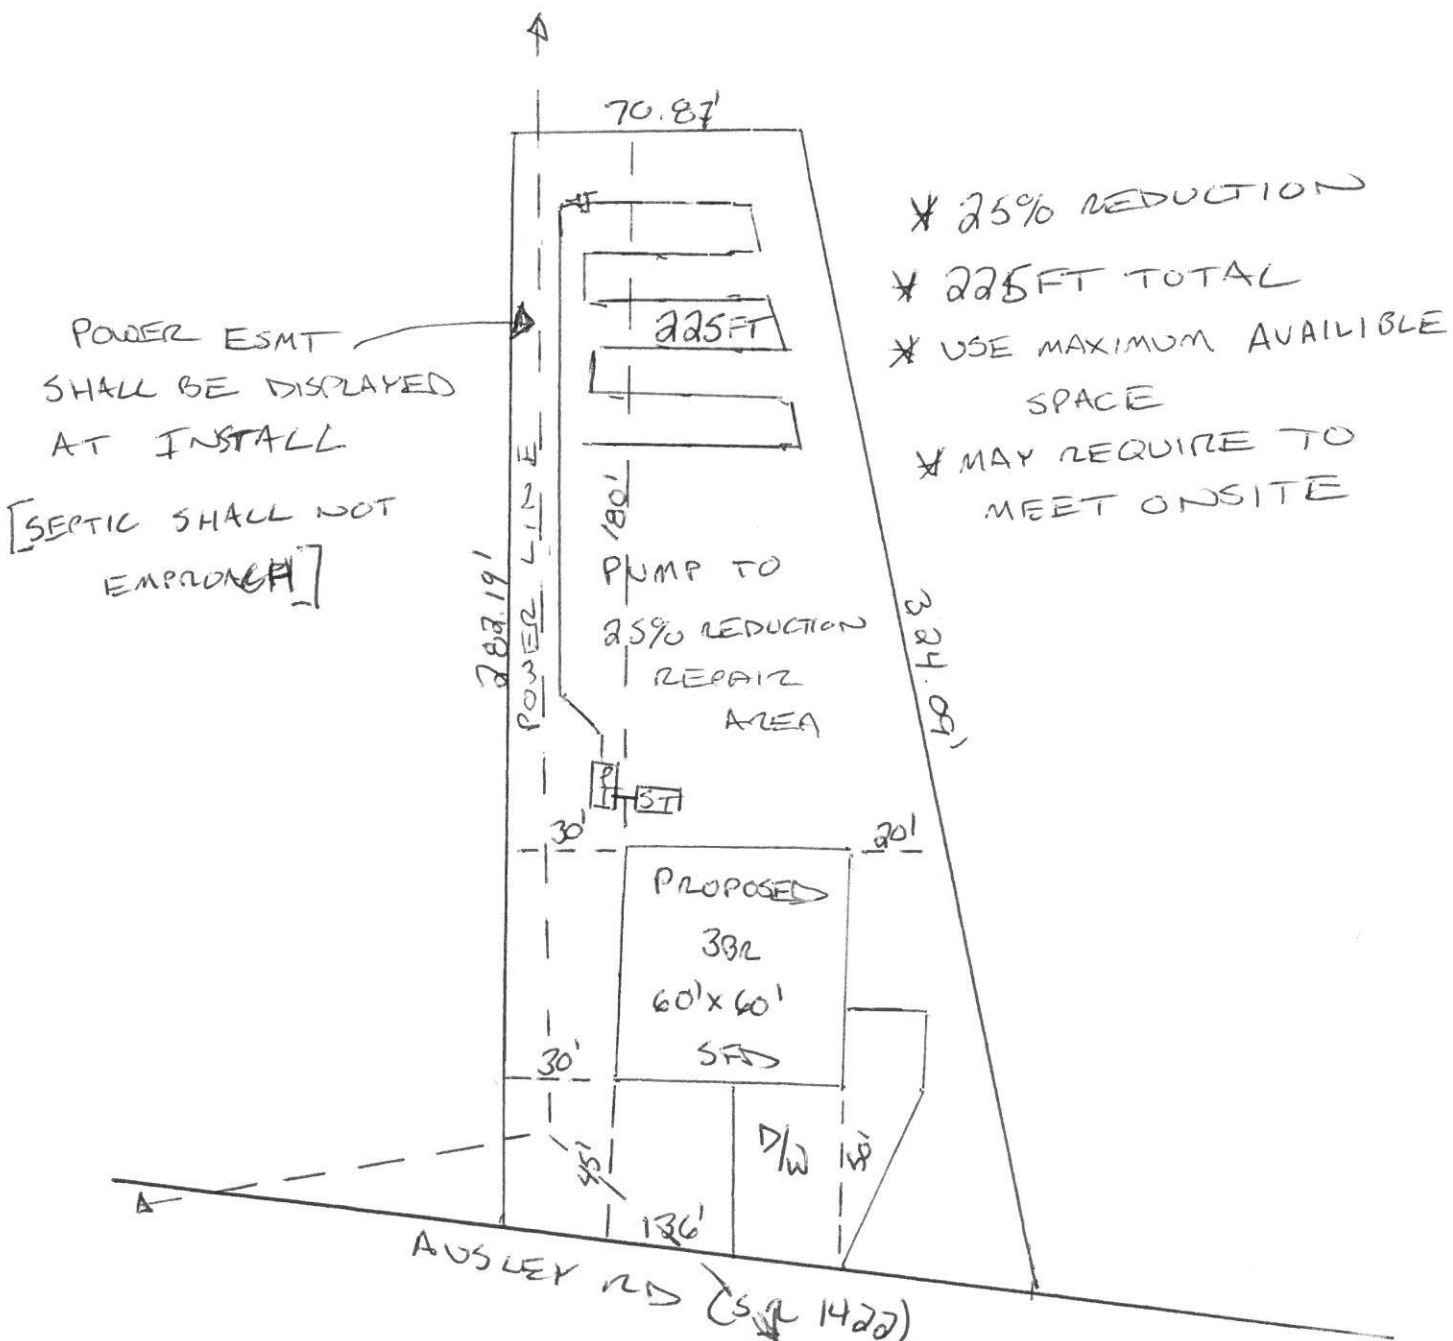 70.87'
* 25% REDUCTION
* 225FT TOTAL
* USE MAXIMUM AVAILIBLE
SPACE
* MAY REQUIRE TO
MEET ONSITE
POWER ESMT
SHALL BE DISPLAYED
AT INSTALL
[SEPTIC SHALL NOT
]
225FT
POWER LINE
282.19'
180'
PUMP TO
25% REDUCTION
REPAIR
AREA
324.09'
PT
ST
30'
20'
PROPOSED
3BR
60' x 60'
SFD
30'
45'
D/W
50'
136'
AUSLEY RD (SR 1422)